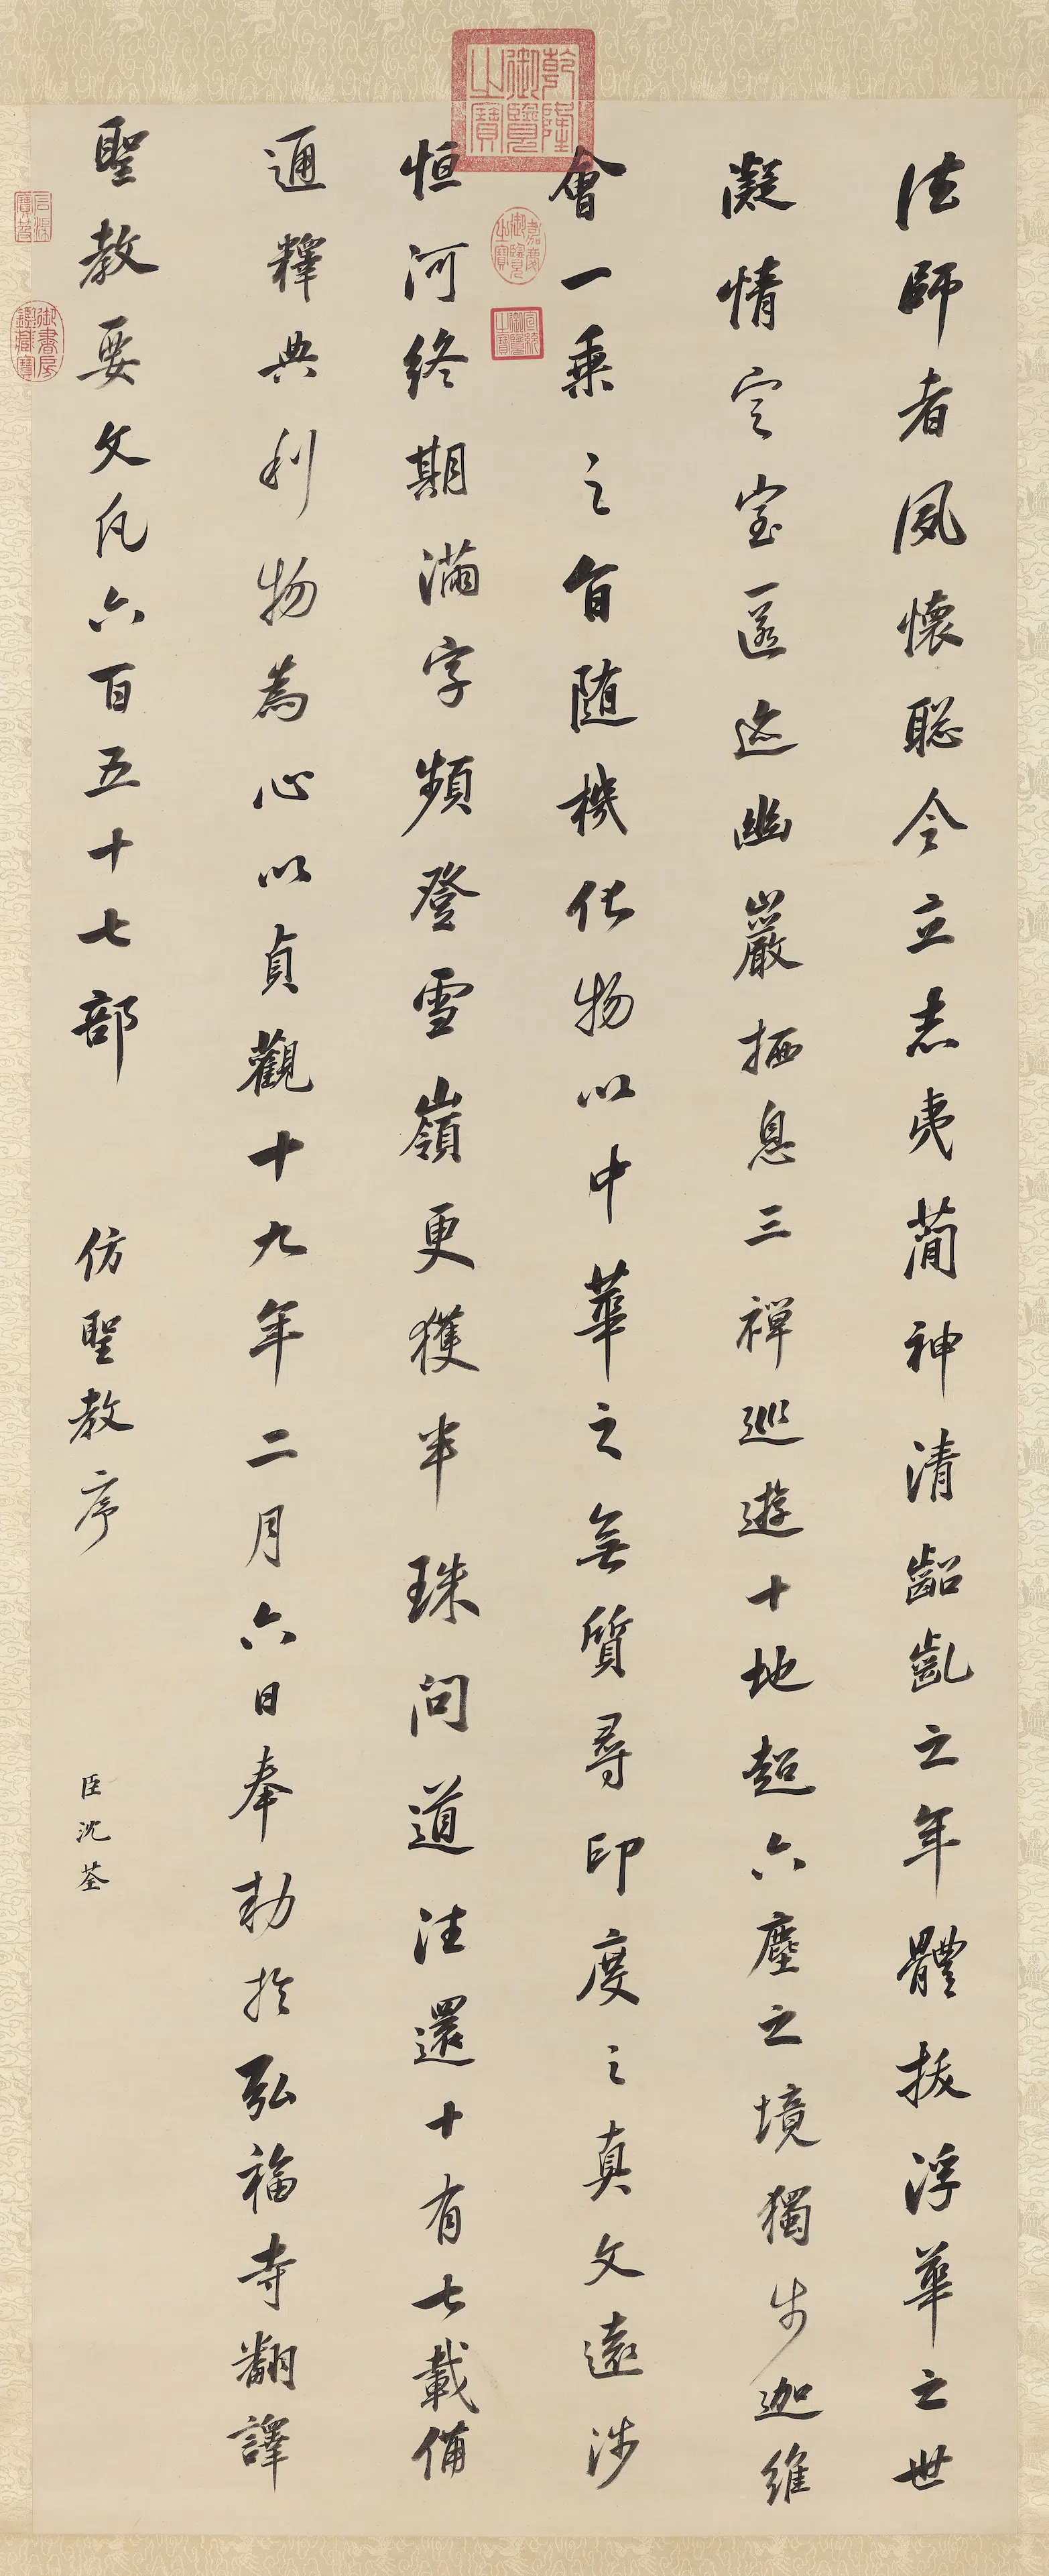 法師者夙懷聡令立志夷蕳神清齠齓之年體拔浮華之世
凝情定室匿迹幽巖栖息三禪巡遊十地超六塵之境獨步迦維
會一乗之旨随機化物以中華之無質尋印度之真文遠涉
恒河終期滿字頻登雪嶺更獲半珠問道法還十有七載備
通釋典利物為心以貞觀十九年二月六日奉勅於弘福寺翻譯
聖教要文凡六百五十七部
仿聖教序
臣沈荃
乾隆御覽之寶
嘉慶御覽之寶
宣統御覽之寶
石渠寶笈
御書房鑑藏寶